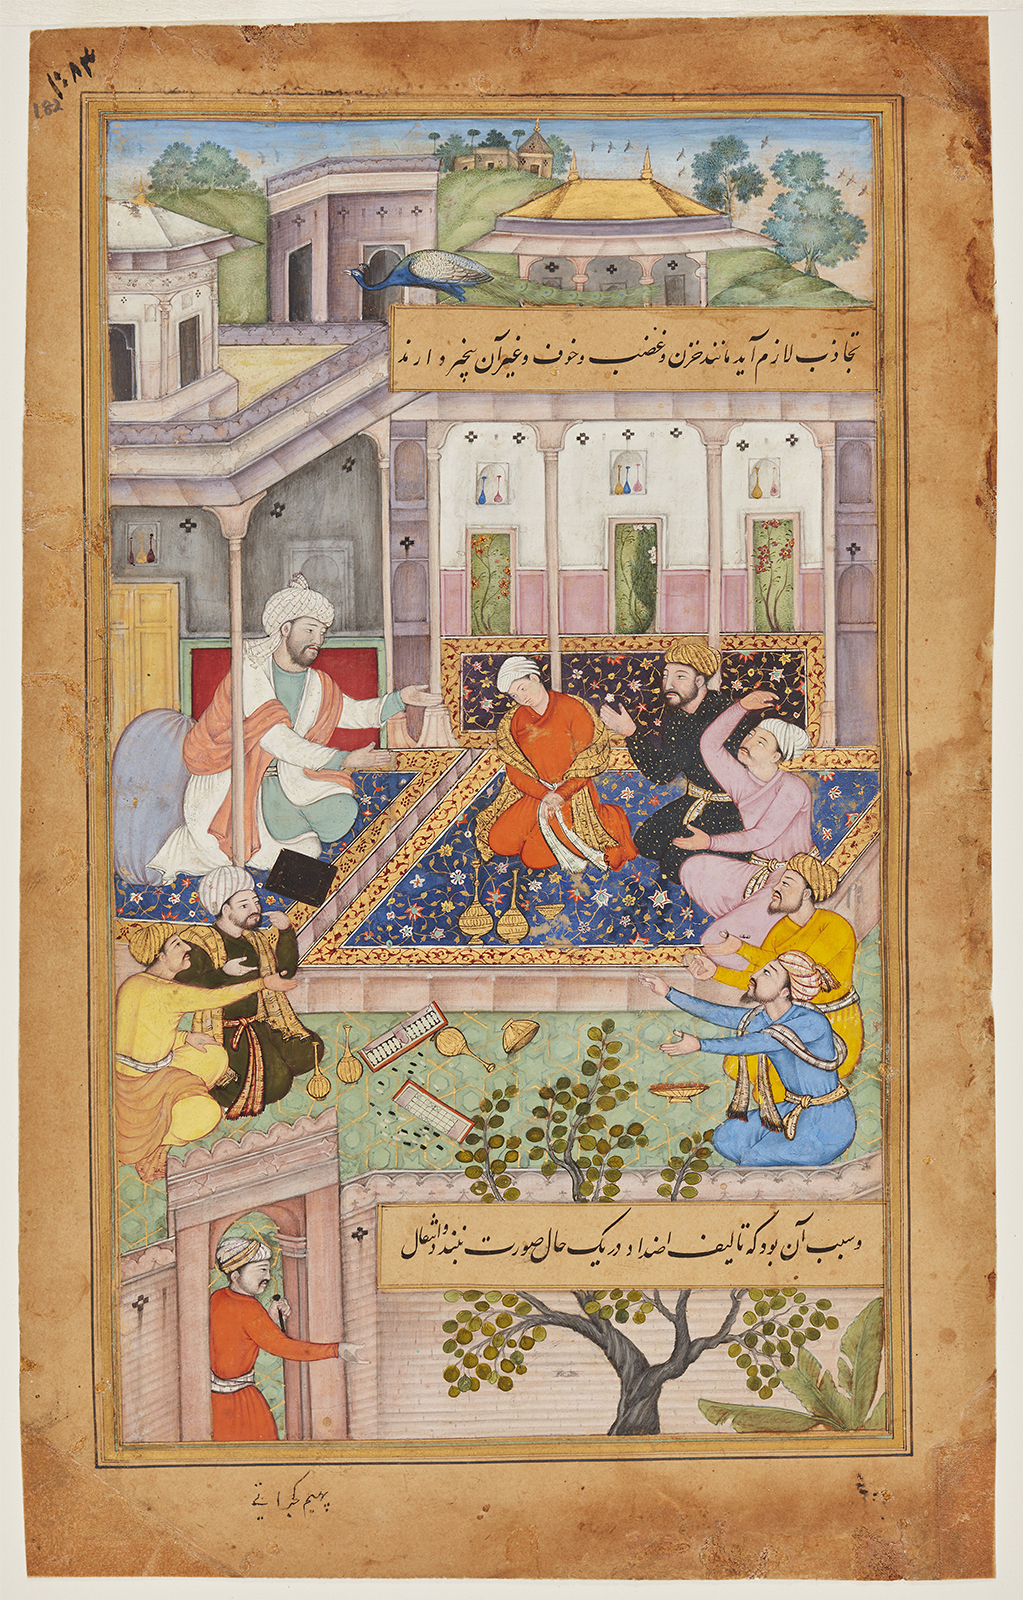 182
تجاذب لازم آید مانند حزن و غضب و خوف و غیر آن
وسبب آن بود که تالیف اضداد در یک حال صورت نبندد و اثقال
پهیم گجراتی